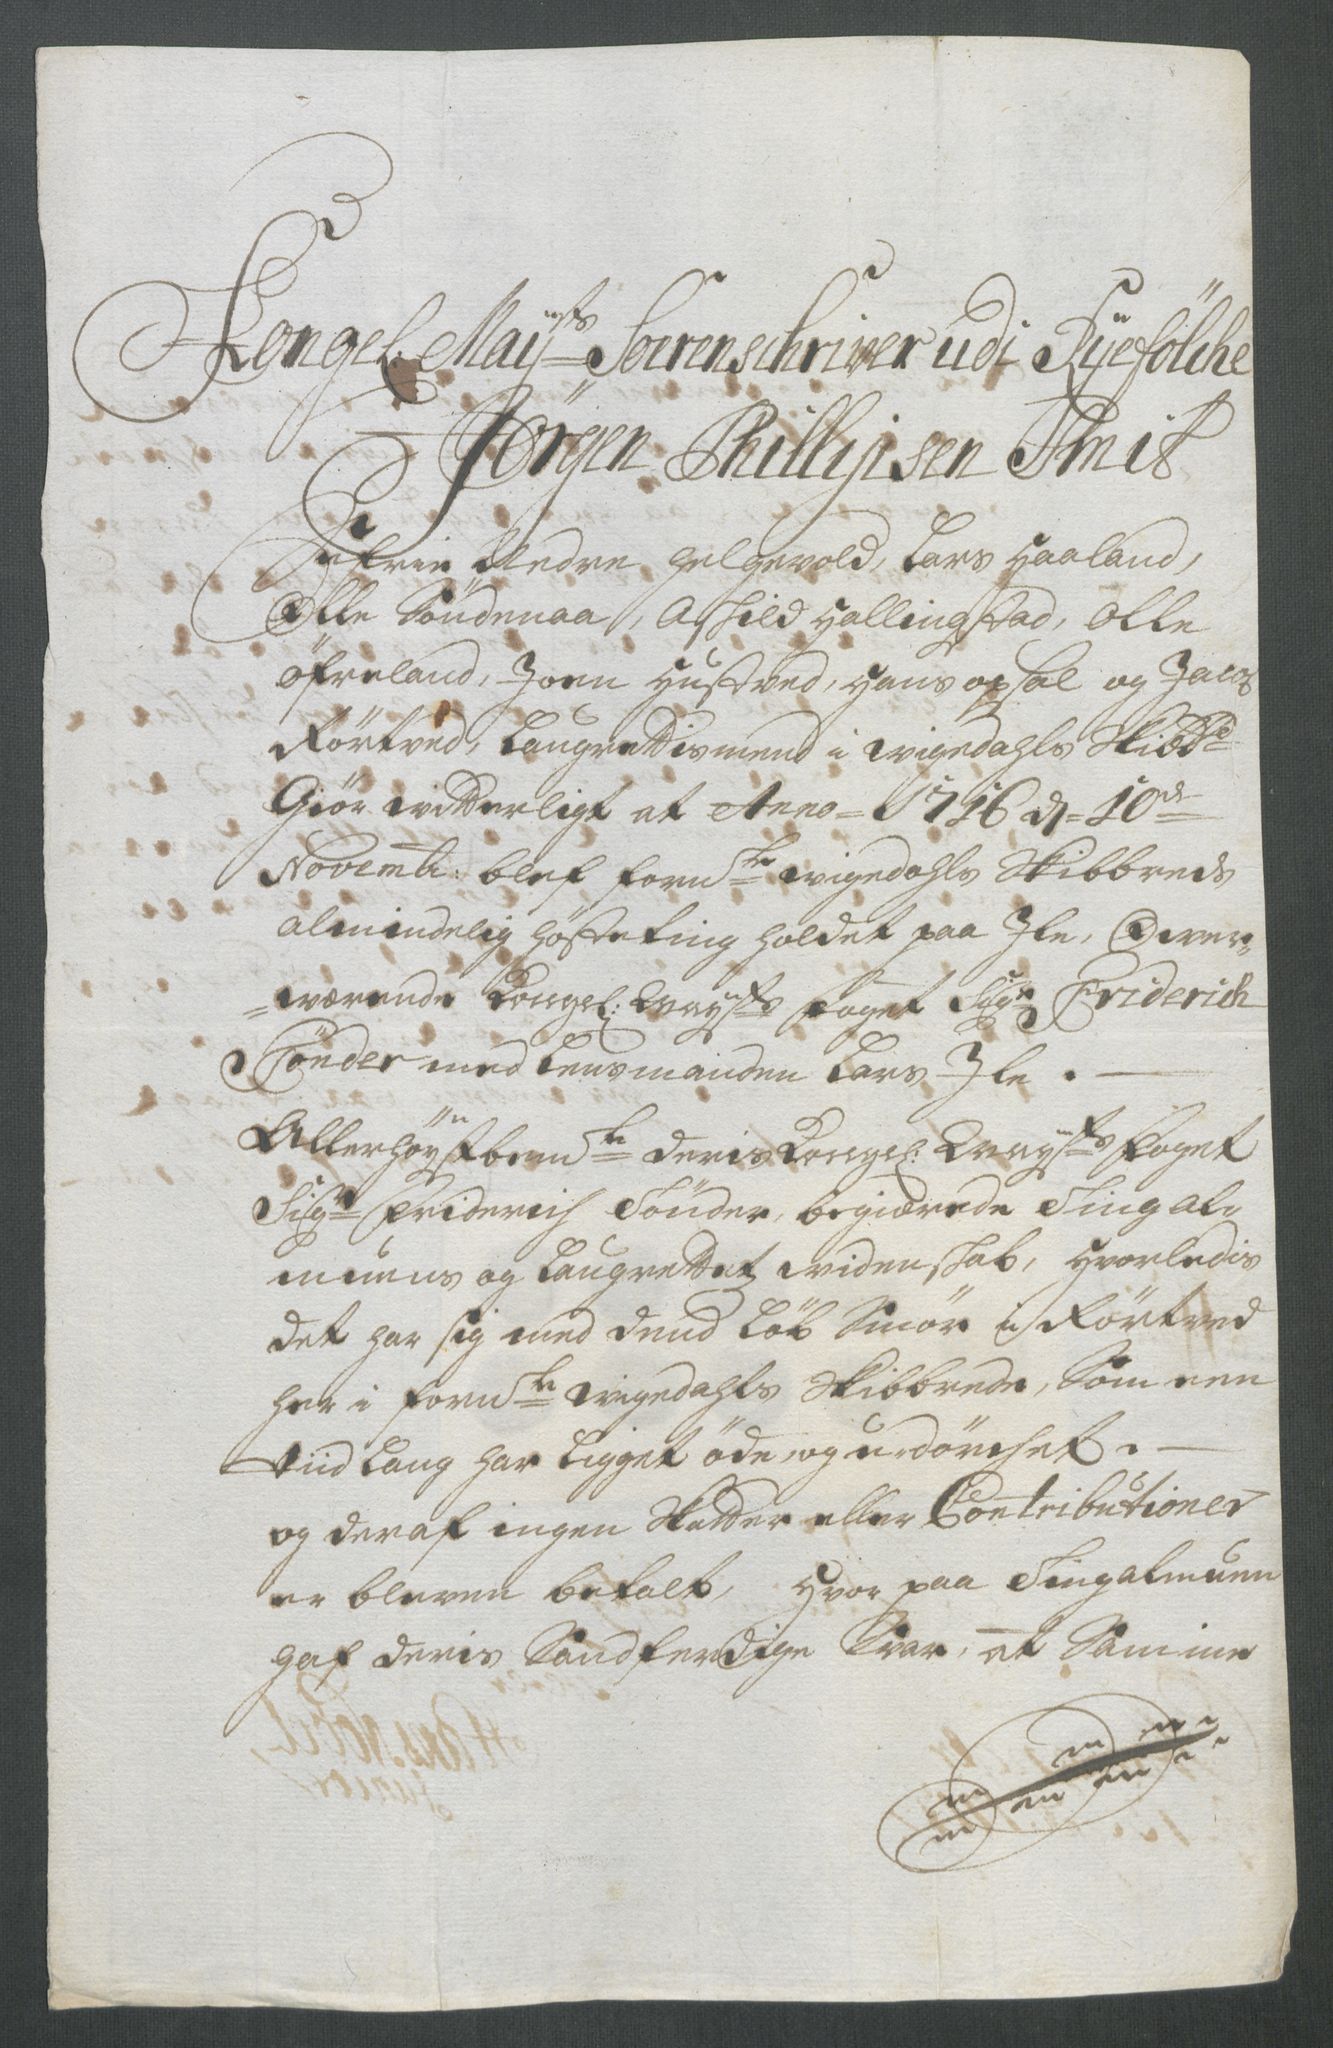 Kongel: Mayts Soerenschriver udi Ryefölche
Jörgen Phillipsen Smit
Sefrin Nedre Helgevold, Lars Haaland,
Olle Söndenaa, Askild Hallingstad, Olle
öfreland, Joen Hustved, Hans opsal og Jacob
Rörtved, Laugrettismend i wigedahls Skibbrd
Giör witterligt at Anno= 1716 d= 10de
Novemb: blef fornte wigedahls Skibbreds
almindelig Hösteting holdet paa Ile, Ower-
=wærende Kongel: Mayts foget Sigr Friderich
Tönder med Lensmanden Lars Ile .
Allerhöystbemte deris Kongel: Mayts foget
Sigr Friderich Tönder, begiærede Tingal-
muens og Laugrettetz widenskab, Hvorledis
det har sig med dend Löb Smör i Rörtved
her i fornte wigedahls Skibbrede, Som een
tiid lang har ligget öde og urdörchet .
og deraf ingen Skatter eller Contributioner
er bleven betalt, Hvor paa Tingalmuen
gaf deris Sandferdige Svar, at Samme